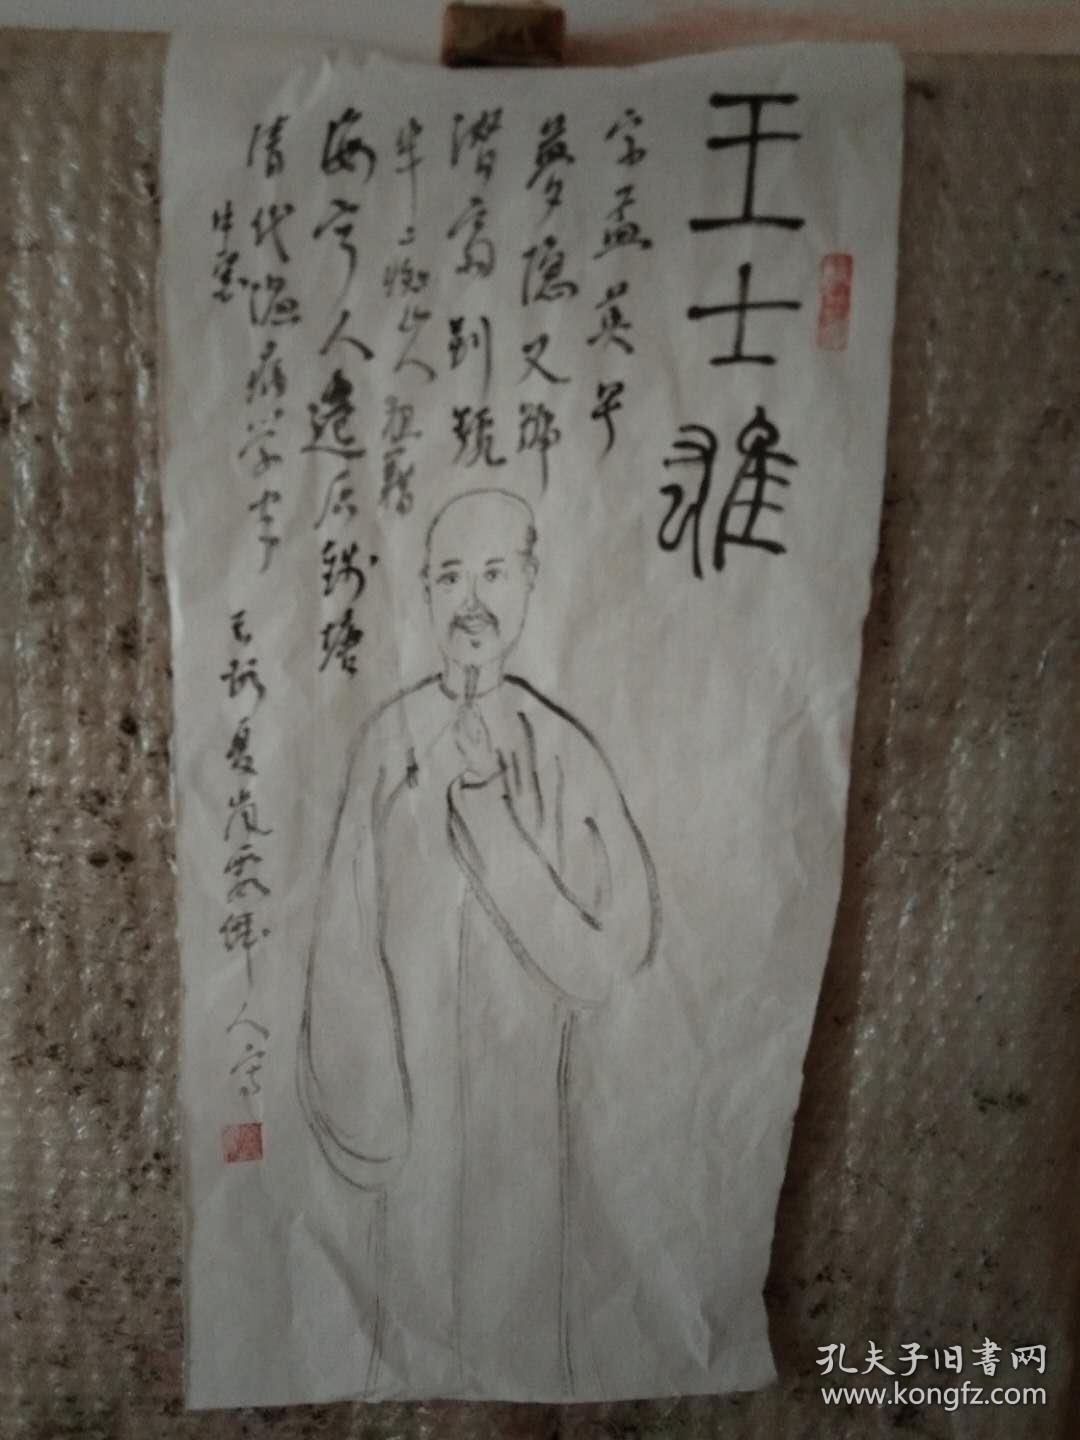 王士雄
字孟英号
梦隐又称
潜斋别号
半痴山人祖籍
海宁人迁居钱塘
清代温病学家
中医
夏岚 人写
孔夫子旧書网
www.kongfz.com